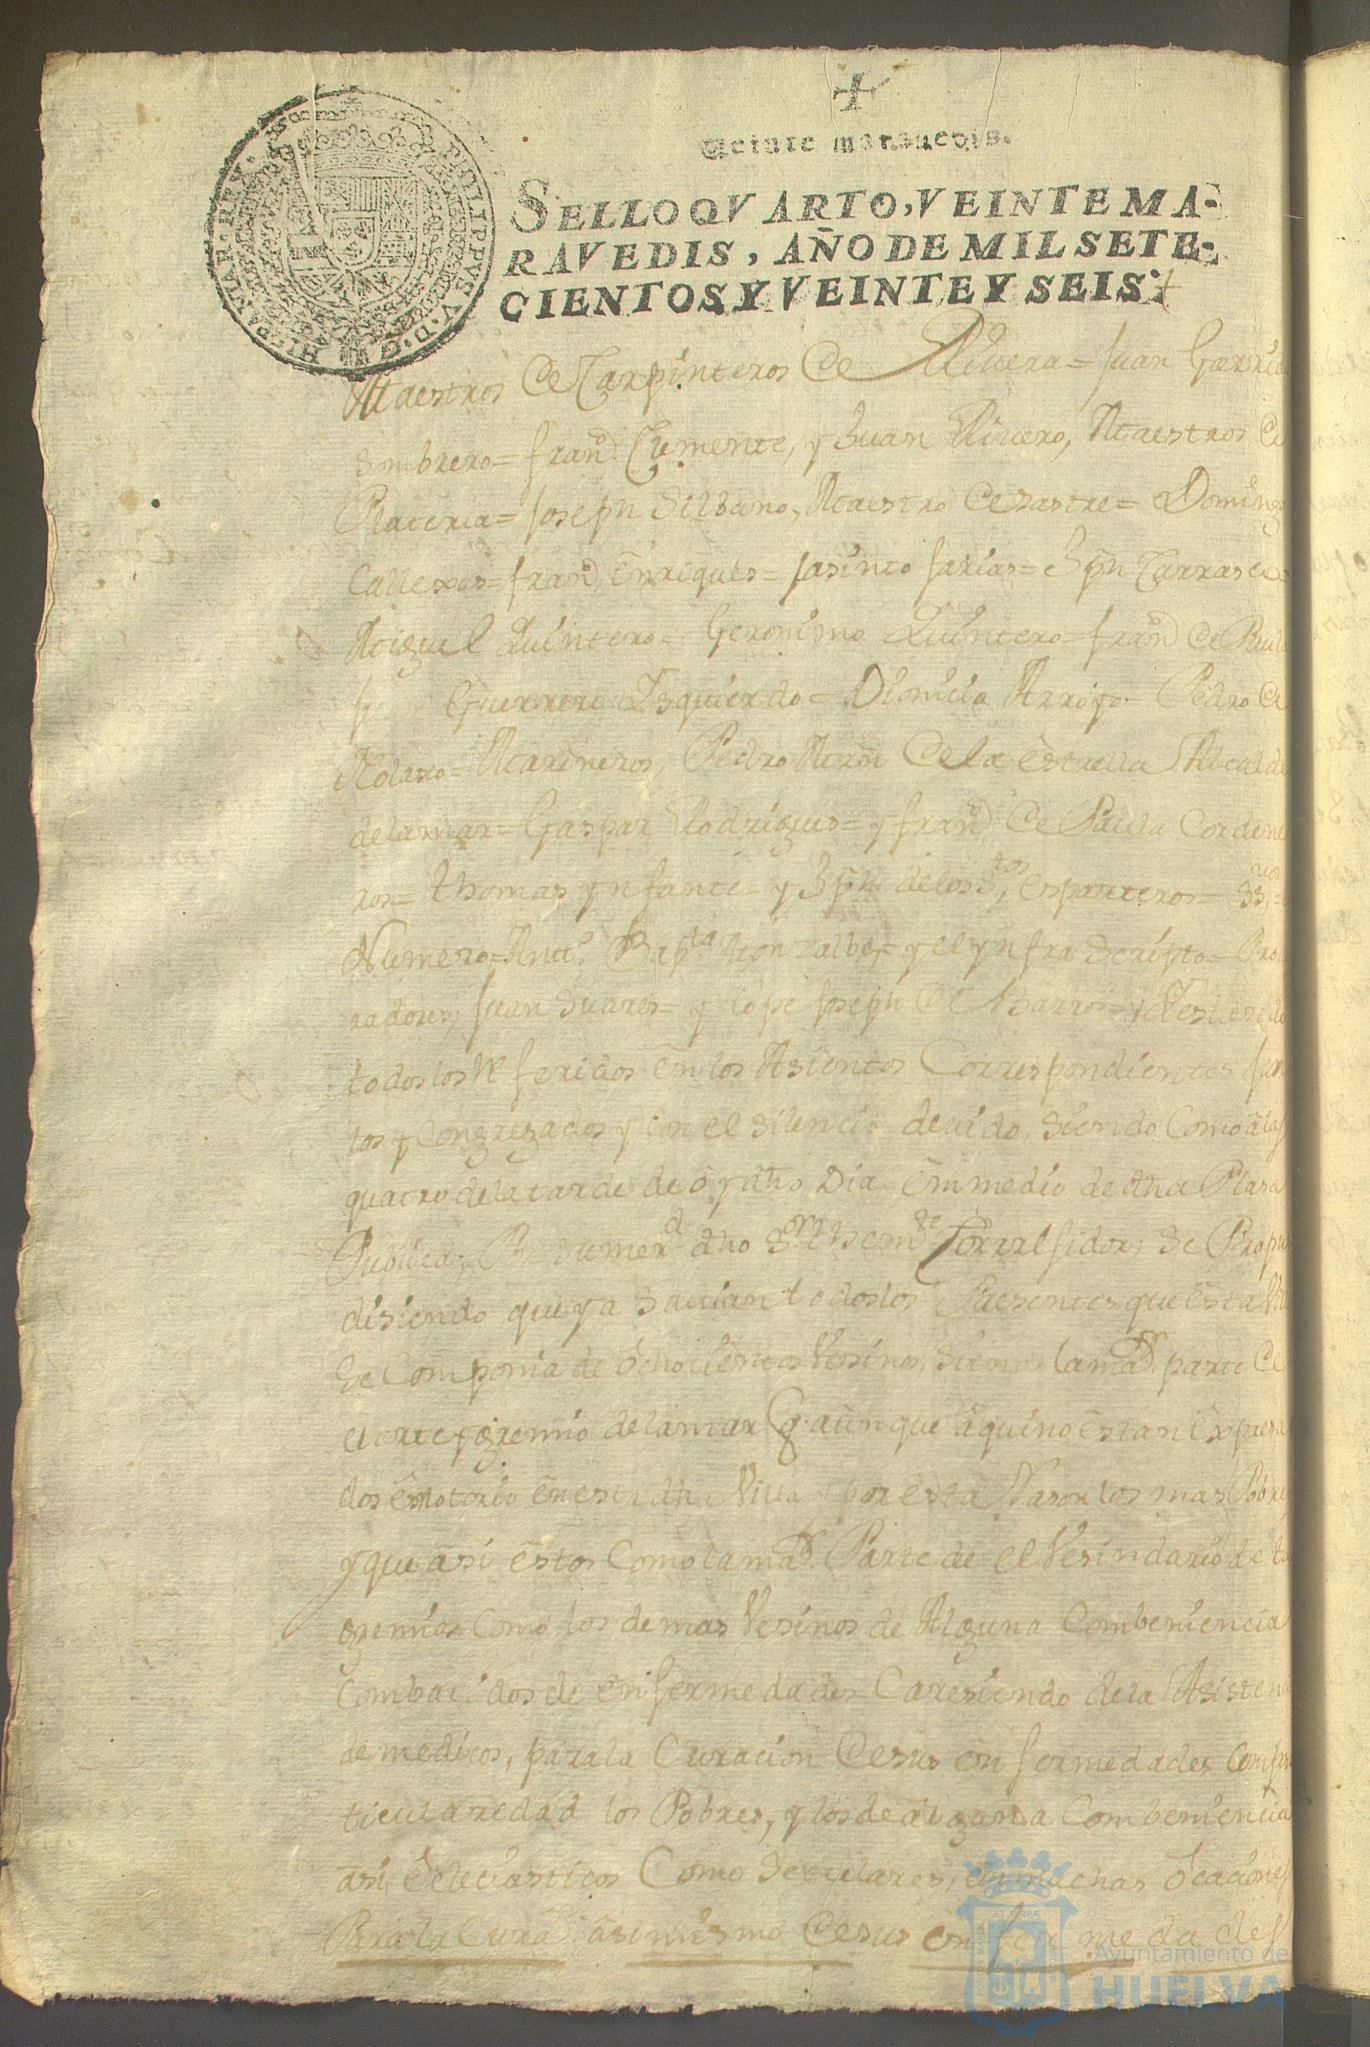 ✝
Veinte marauedis.
PHILIPPVS.V.D.G. HISPANIAR.REX.
SELLO QVARTO, VEINTE MA-
RAVEDIS, AÑO DE MIL SETE-
CIENTOS Y VEINTE Y SEIS.
Maestros de Carpinteros de Riuera= Juan Garrid
Sombrero= fran.co Clemente, y Juan Riuero, Maestros de
Plateria= Joseph Silbano, Maestro de sastre= Doming
Callexas= fran.co enriques= Jasinto farias= Jph Carrasco=
Miguel Quintero= Geronimo Quintero= fran.co de Paula
Guerrero Ysquierdo= Dionicio Arroyo= Pedro de
Nolasco= Marineros, Pedro Mrn de la estrella Alcalde
de la mar= Gaspar Rodrigues= y fran.co de Paula Cordone
ros= thomas ynfante= y Jph de los S.tos esparteros=
Numero= Ant.o Bap.ta Gonzalbes= y el ynfra scripto= Procu
radores, Juan Suares= y Lope Joseph de Barros= y
todos los Referidos en los Asientos Correspondientes Jun
tos y Congregados y con el silencio deuido, siendo Como a las
quatro de la tarde de oy dho Dia en medio de dha Plasa
Publica, Por su mer.d dho S.or then.te Correxidor, se Propu
disiendo que ya sauian todos los Presentes que esta Villa
se Componia de ochocientos Vesinos, siendo la ma.or parte de
el arte y gremio de la mar q. aunque aqui no estan expresa
dos es notorio en esta dha Villa y por esta Rason los mas Pobres
y que asi estos Como la ma.or Parte de el Vesindario de to
gremios Como los demas Vesinos de Alguna Combeniencia
Combatidos de enfermedades Caresiendo de la Asistena
de medicos, para la Curacion de sus enfermedades Con par
ticularedad los Pobres, y los de alguna Combeniencia
asi eclesiasticos Como Seculares, en muchas ocaciones
Para la Cura asimismo de sus enfermedades
Ayuntamiento de
HUELVA